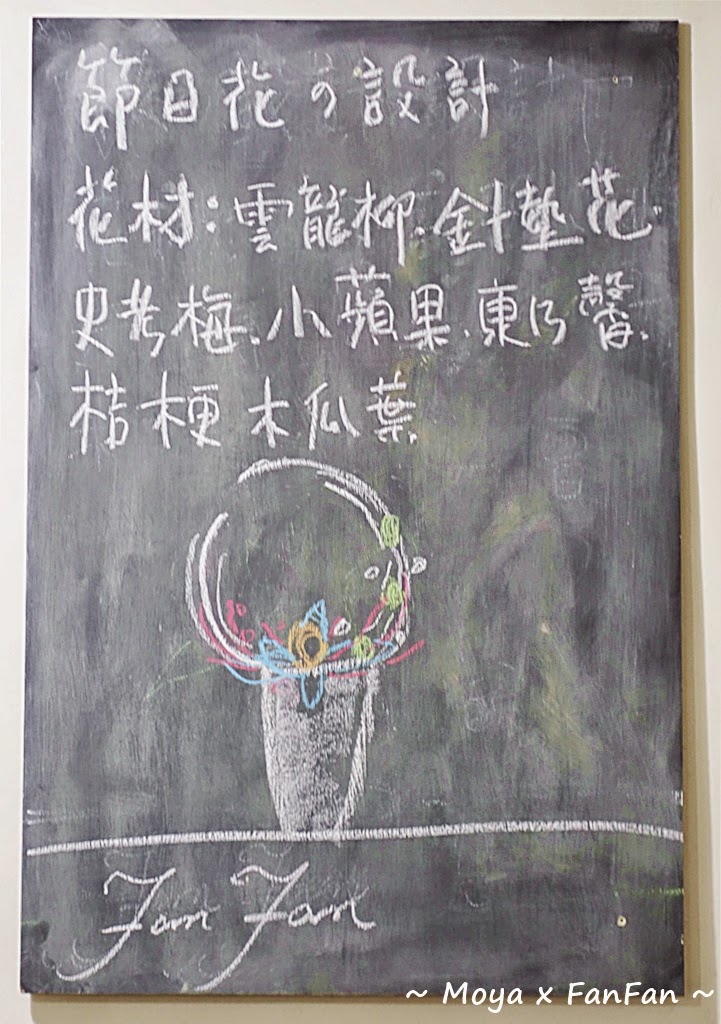 節日花の設計
花材:雲龍柳.針墊花.
史考梅、小蘋果.東乃馨.
桔梗 木瓜葉
Fan Fan
~ Moya x FanFan ~